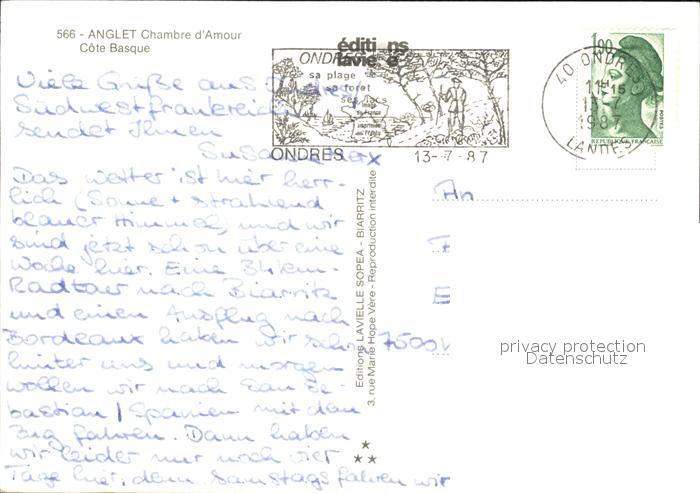 566 - ANGLET Chambre d'Amour
Côte Basque
éditi ns
lavie e
ONDRES
sa plage
sa foret
ses lacs
ONDRES 13-7-87
40 ONDRES
11H15
13-7
1987
LANDES
1,90
POSTES
REPUBLIQUE FRANÇAISE
Viele Grüße aus
Südwestfrankreich
sendet Ihnen
Das Wetter ist hier herr-
lich (Sonne + strahlend
blauer Himmel) und wir
sind jetzt schon über eine
Woche hier. Eine 34 km-
Radtour nach Biarritz
und einen Ausflug nach
Bordeaux haben wir schon
hinter uns und morgen
wollen wir nach San Se-
bastian / Spanien mit dem
Zug fahren. Dann haben
wir leider nur noch vier
Tage hier, denn Samstags fahren wir
Editions LAVIELLE SOPEA - BIARRITZ
3, rue Marie Hope Vère - Reproduction interdite
An
F
E
7500
privacy protection
Datenschutz